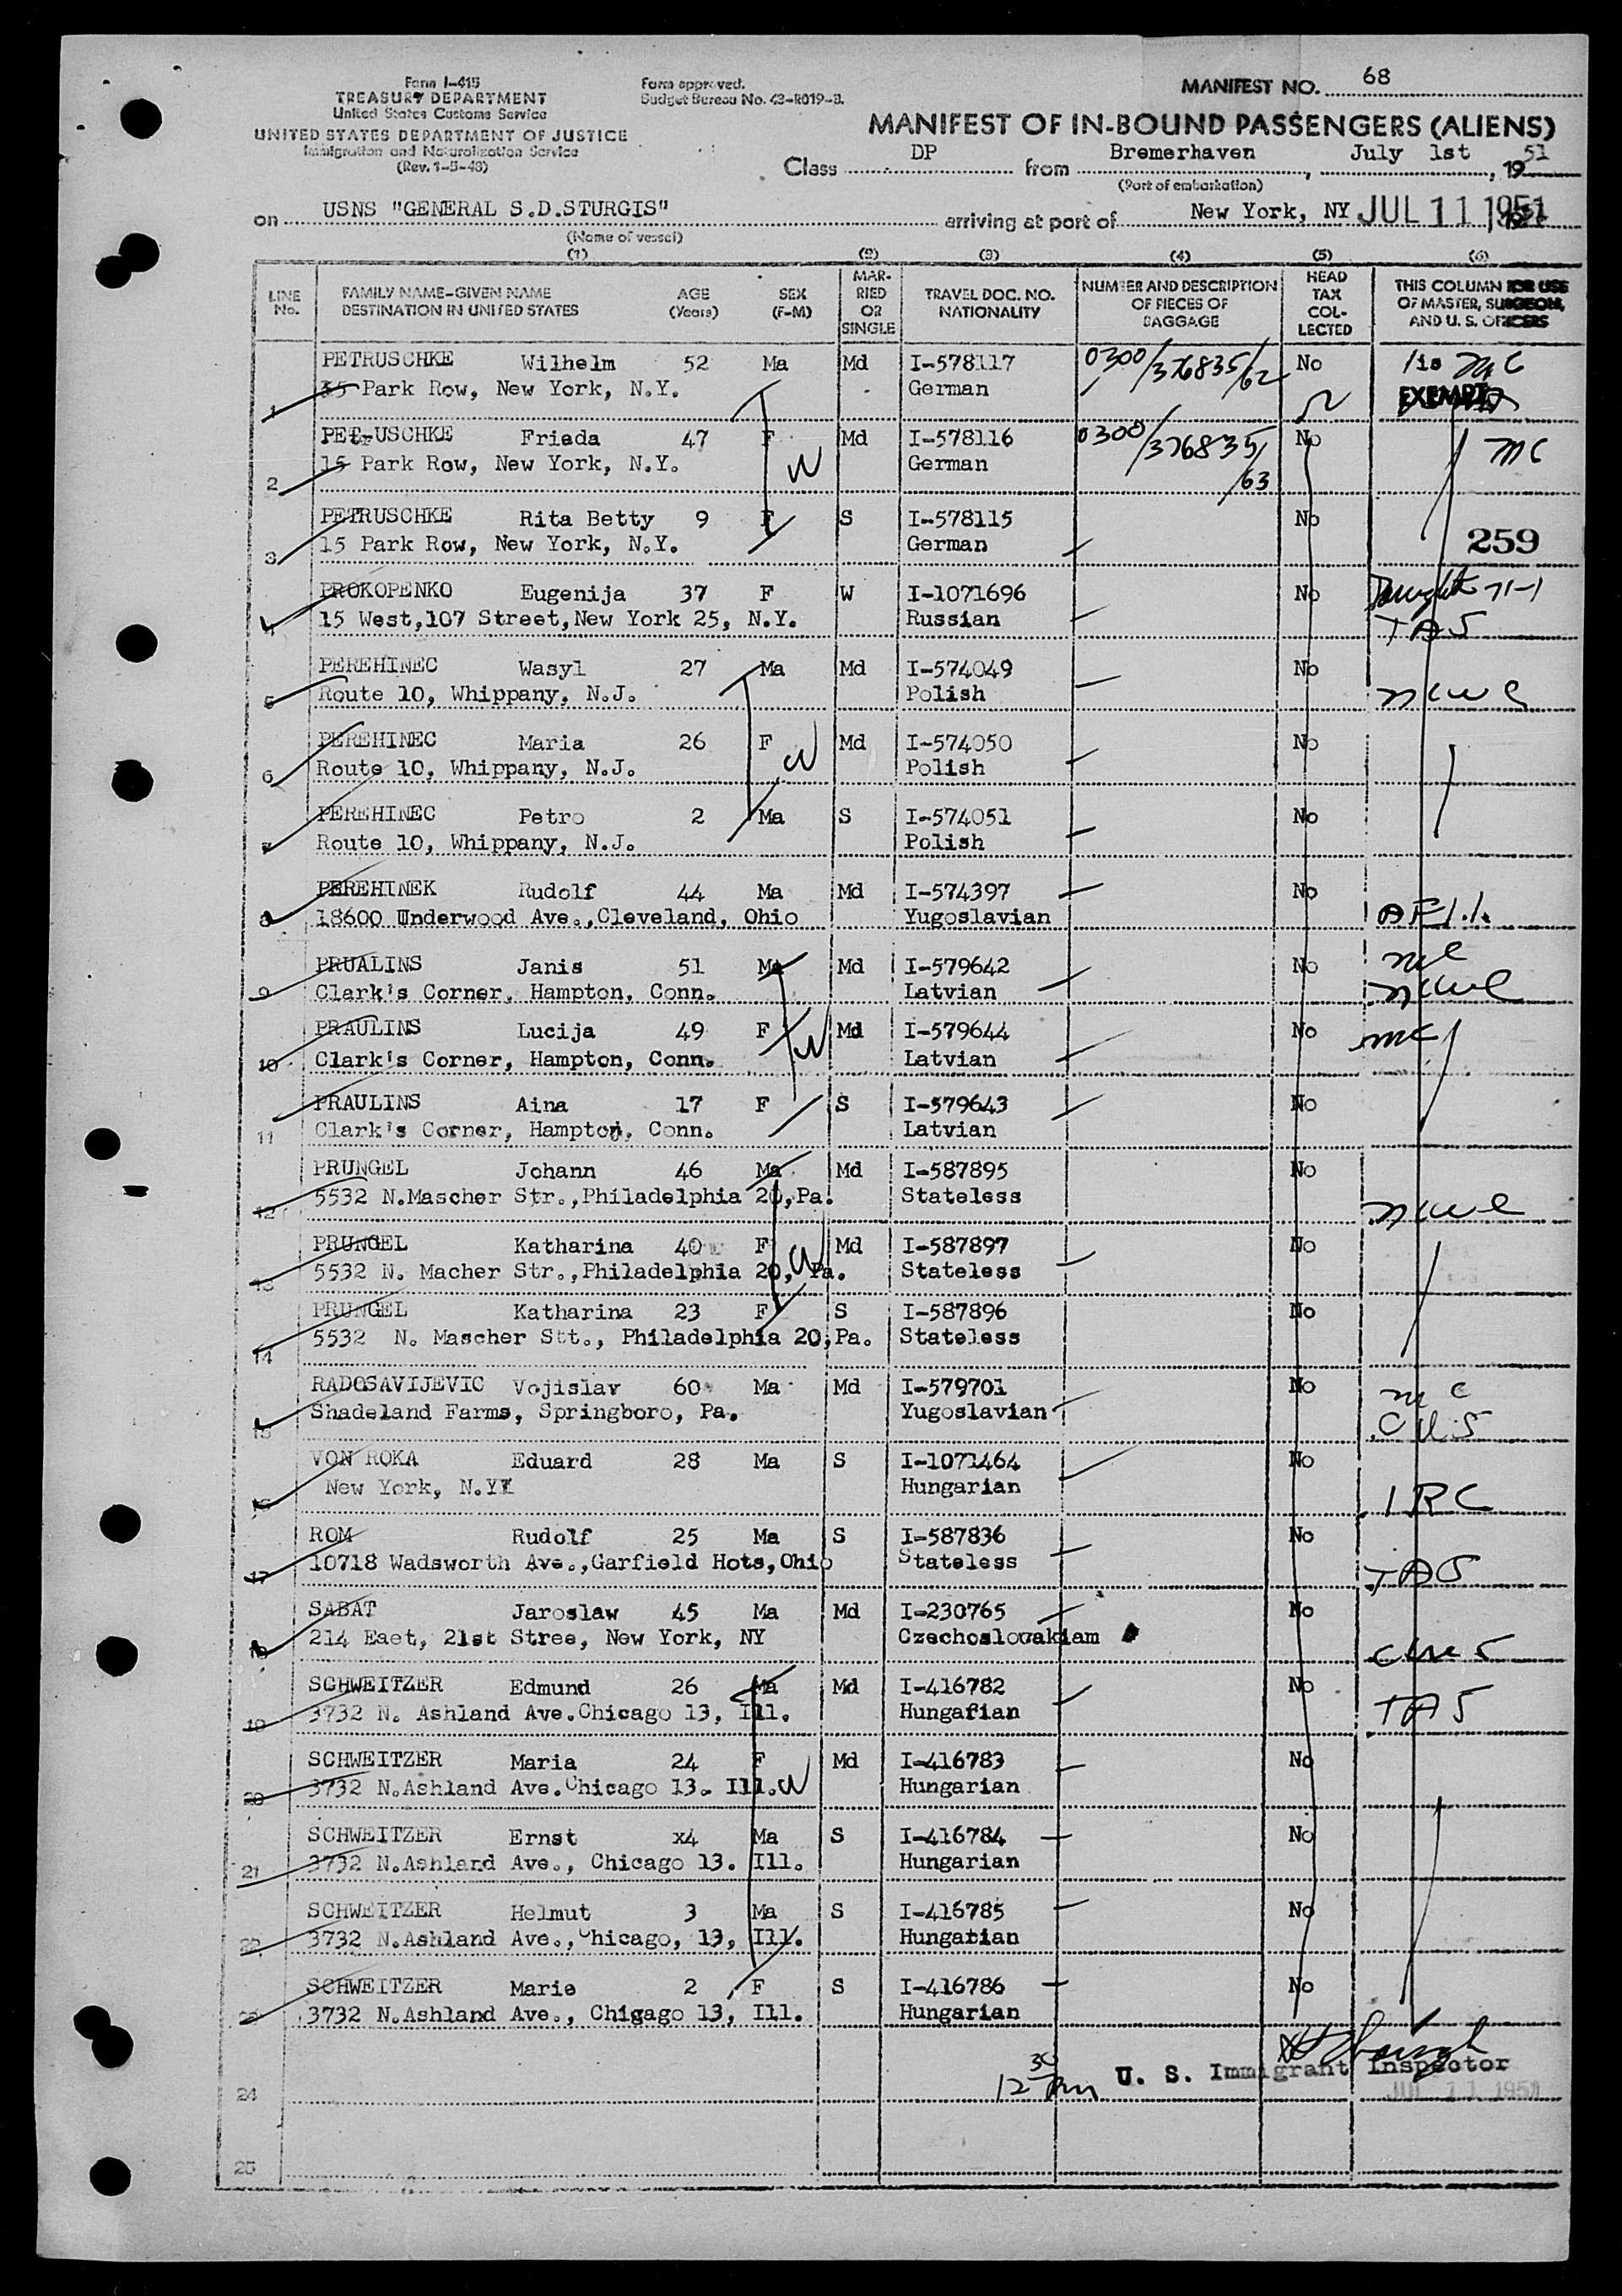 Form I-415
TREASURY DEPARTMENT
United States Customs Service
UNITED STATES DEPARTMENT OF JUSTICE
Immigration and Naturalization Service
(Rev. 1-5-48)
Form approved.
Budget Bureau No. 43-R019-3.
MANIFEST NO. 68
MANIFEST OF IN-BOUND PASSENGERS (ALIENS)
Class DP from Bremerhaven, July 1st, 1951
(Port of embarkation)
on USNS "GENERAL S.D.STURGIS" arriving at port of New York, NY JUL 11 1951
(Name of vessel)
(1) (2) (3) (4) (5) (6)
LINE No. FAMILY NAME-GIVEN NAME DESTINATION IN UNITED STATES AGE (Years) SEX (F-M) MARRIED OR SINGLE TRAVEL DOC. NO. NATIONALITY NUMBER AND DESCRIPTION OF PIECES OF BAGGAGE HEAD TAX COLLECTED THIS COLUMN FOR USE OF MASTER, SURGEON, AND U. S. OFFICERS
PETRUSCHKE Wilhelm 52 Ma Md I-578117 0300/376835/62 No
1 15 Park Row, New York, N.Y. German EXEMPT
PETRUSCHKE Frieda 47 F Md I-578116 0300/376835/63 No mc
2 15 Park Row, New York, N.Y. W German
PETRUSCHKE Rita Betty 9 F S I-578115 No
3 15 Park Row, New York, N.Y. German 259
PROKOPENKO Eugenija 37 F W I-1071696 No
4 15 West,107 Street,New York 25, N.Y. Russian TAS
PEREHINEC Wasyl 27 Ma Md I-574049 No
5 Route 10, Whippany, N.J. Polish ncwc
PEREHINEC Maria 26 F Md I-574050 No
6 Route 10, Whippany, N.J. W Polish
PEREHINEC Petro 2 Ma S I-574051 No
7 Route 10, Whippany, N.J. Polish
PEREHINEK Rudolf 44 Ma Md I-574397 No
8 18600 Underwood Ave.,Cleveland, Ohio Yugoslavian
PRUALINS Janis 51 Ma Md I-579642 No mc
9 Clark's Corner, Hampton, Conn. Latvian ncwc
PRAULINS Lucija 49 F W Md I-579644 No mc
10 Clark's Corner, Hampton, Conn. Latvian
PRAULINS Aina 17 F S I-579643 No
11 Clark's Corner, Hampton, Conn. Latvian
PRUNGEL Johann 46 Ma Md I-587895 No
12 5532 N.Mascher Str.,Philadelphia 20,Pa. Stateless ncwc
PRUNGEL Katharina 40 F W Md I-587897 No
13 5532 N. Macher Str.,Philadelphia 20, Pa. Stateless
PRUNGEL Katharina 23 F S I-587896 No
14 5532 N. Mascher Stt., Philadelphia 20,Pa. Stateless
RADOSAVIJEVIC Vojislav 60 Ma Md I-579701 No mc
15 Shadeland Farms, Springboro, Pa. Yugoslavian
VON ROKA Eduard 28 Ma S I-1071464 No
16 New York, N.Y Hungarian IRC
ROM Rudolf 25 Ma S I-587836 No
17 10718 Wadsworth Ave.,Garfield Hots,Ohio Stateless TAS
SABAT Jaroslaw 45 Ma Md I-230765 No
18 214 Eaet, 21st Stree, New York, NY Czechoslovakiam
SCHWEITZER Edmund 26 Ma Md I-416782 No
19 3732 N. Ashland Ave.Chicago 13, Ill. Hungafian TAS
SCHWEITZER Maria 24 F Md I-416783 No
20 3732 N.Ashland Ave.Chicago 13. Ill. W Hungarian
SCHWEITZER Ernst x4 Ma S I-416784 No
21 3732 N.Ashland Ave., Chicago 13. Ill. Hungarian
SCHWEITZER Helmut 3 Ma S I-416785 No
22 3732 N.Ashland Ave.,Chicago, 13, Ill. Hungarian
SCHWEITZER Marie 2 F S I-416786 No
23 3732 N.Ashland Ave., Chigago 13, Ill. Hungarian
12 30 pm U. S. Immigrant Inspector
24 JUL 11 1951
25